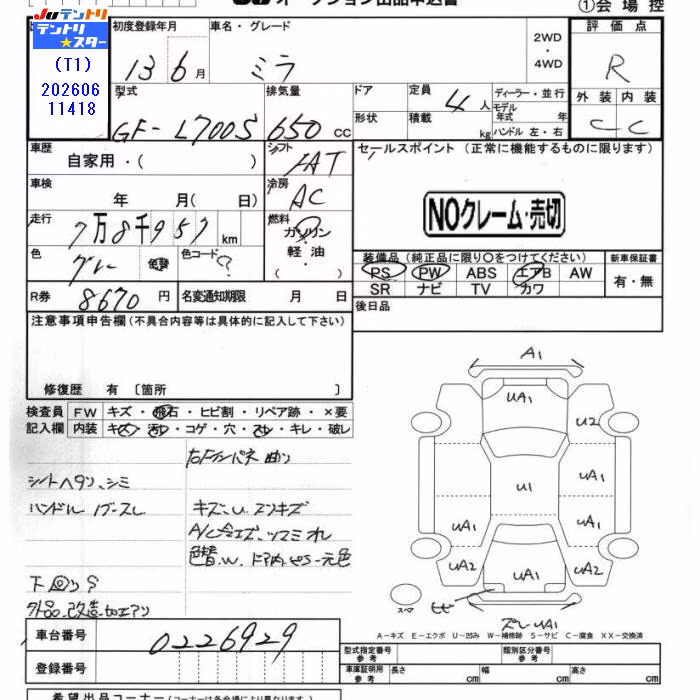 JUテントリ
テントリ☆スター
(T1)
202606
11418
①会場控
初度登録年月 13 6月
車名・グレード ミラ
2WD
・
4WD
評価点
R
外装 内装
C C
型式 GF-L700S
排気量 650 CC
ドア
形状
定員 4人
積載 kg
ディーラー・並行
モデル
年式 年
ハンドル 左・右
車歴
自家用・( )
シフト FAT
セールスポイント (正常に機能するものに限ります)
車検 年 月( 日)
冷房 AC
NOクレーム・売切
走行 7万8千957 km
燃料 ガソリン・軽油
( )
色 グレー 色替 色コード ?
装備品 (純正品に限り○をつけてください) 新車保証書
PS PW ABS エアB AW 有・無
SR ナビ TV カワ
R券 8670円 名変通知期限 月 日
後日品
注意事項申告欄 (不具合内容等は具体的に記入して下さい)
修復歴 有 〔箇所 〕
検査員 FW キズ・飛石・ヒビ割・リペア跡・×要
記入欄 内装 キズ・汚れ・コゲ・穴・スレ・キレ・破レ
右Fインパネ曲り
シートヘタリ、シミ
ハンドル
キズ、U
色替、W、ドア内
下回りS
外品、改造、加工アリ
A1
UA1
U2
UA1
U1
UA1
UA1
UA1
UA2
UA2
UA1
スペア
ヒビ
ズレ・UA1
A-キズ E-エクボ U-凹み W-補修跡 S-サビ C-腐食 XX-交換済
車台番号 0226929
登録番号
型式指定番号
参考
類別区分番号
参考
車庫証明用
参考
長さ cm 幅 cm 高さ cm
希望出品コーナー (コーナーは各会場により異なります。)